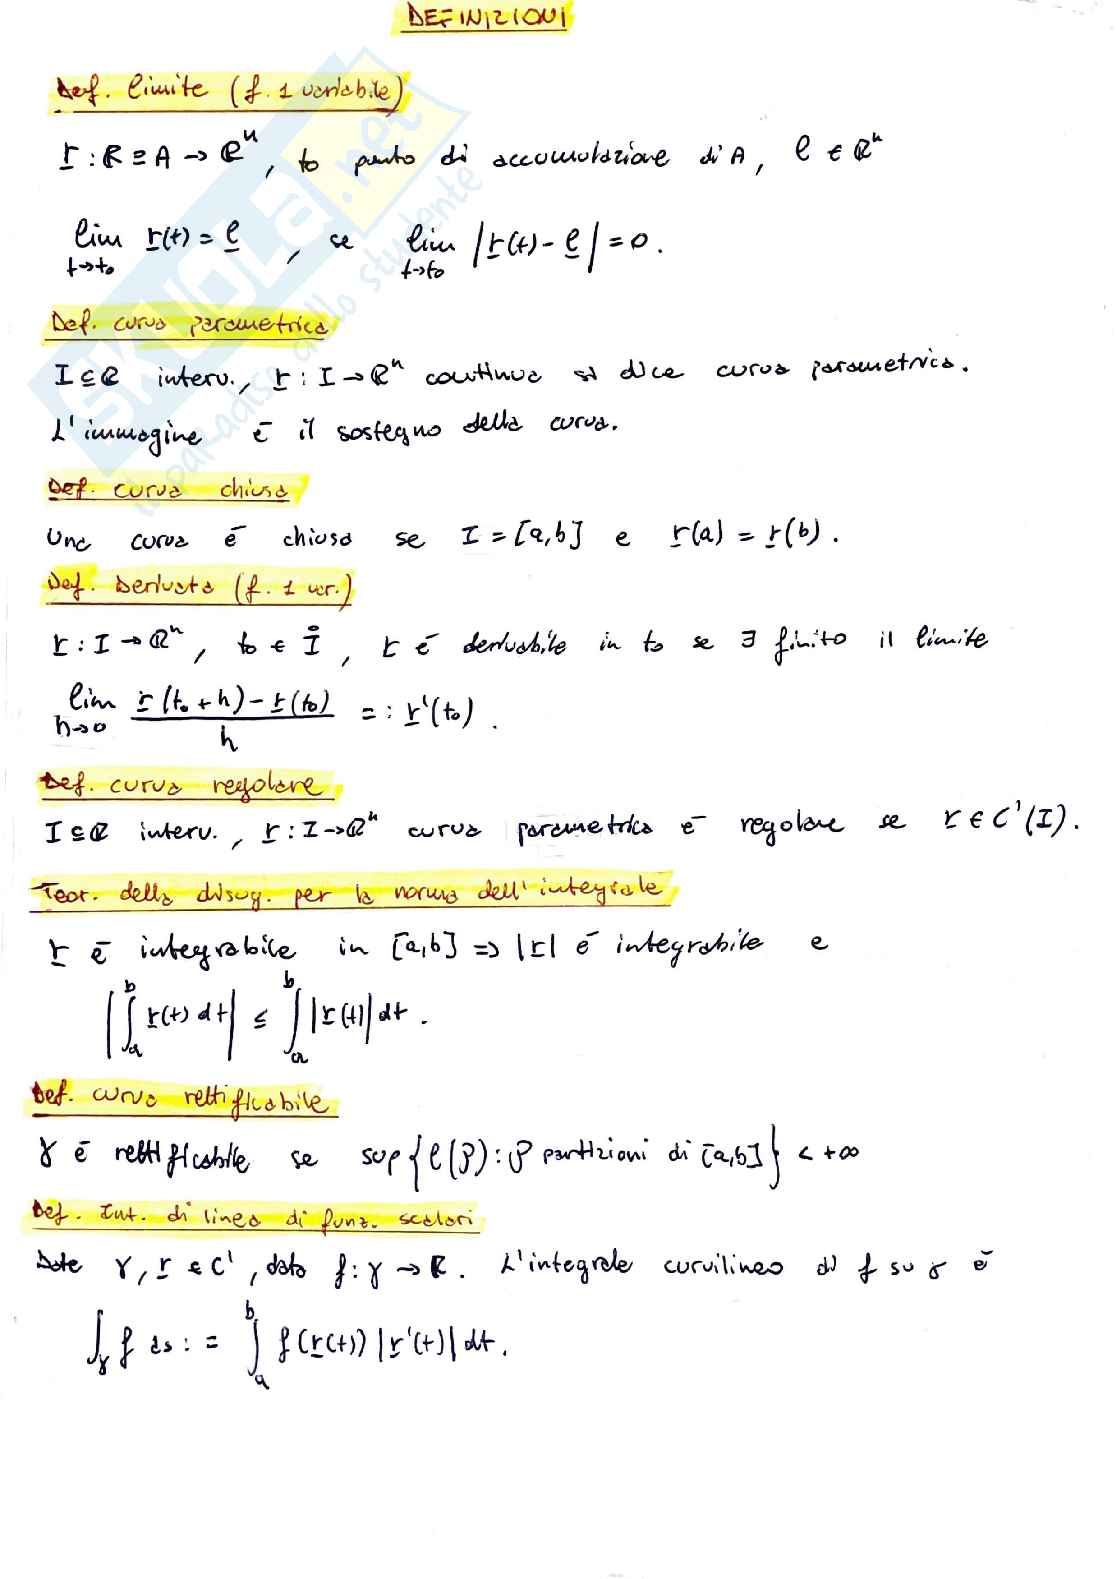 DEFINIZIONI
Def. limite (f. 1 variabile)
r : R ⊇ A → Rⁿ, t₀ punto di accumulazione di A, l ∈ Rⁿ
lim t→t₀ r(t) = l, se lim t→t₀ |r(t) - l| = 0.
Def. curva parametrica
I ⊆ R interv., r : I → Rⁿ continua si dice curva parametrica.
L'immagine è il sostegno della curva.
Def. curva chiusa
Una curva è chiusa se I = [a,b] e r(a) = r(b).
Def. Derivata (f. 1 var.)
r : I → Rⁿ, t₀ ∈ I̊, r è derivabile in t₀ se ∃ finito il limite
lim h→0 (r(t₀ + h) - r(t₀)) / h =: r'(t₀).
Def. curva regolare
I ⊆ R interv., r : I → Rⁿ curva parametrica è regolare se r ∈ C'(I).
Teor. della disug. per la norma dell'integrale
r è integrabile in [a,b] => |r| è integrabile e
|∫ₐᵇ r(t) dt| ≤ ∫ₐᵇ |r(t)| dt.
Def. curva rettificabile
γ è rettificabile se sup{l(P) : P partizioni di [a,b]} < +∞
Def. Int. di linea di funz. scalari
Date γ, r ∈ C', data f : γ → R. L'integrale curvilineo di f su γ è
∫γ f ds := ∫ₐᵇ f(r(t)) |r'(t)| dt.
SKUOLA.net
il paradiso dello studente